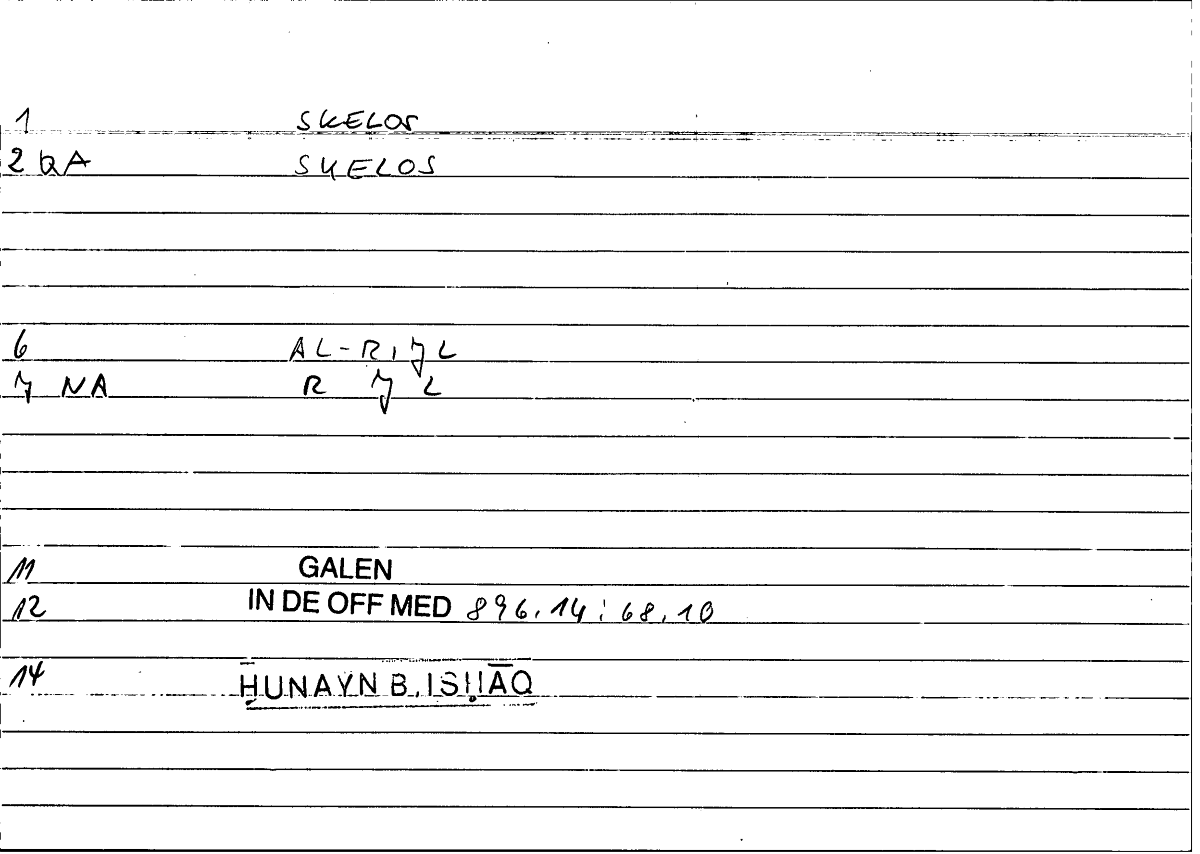 1 SKELOS
2 QA SKELOS
6 AL-RIJL
7 NA R J L
11 GALEN
12 IN DE OFF MED 896.14:68.10
14 ḤUNAYN B. ISḤĀQ